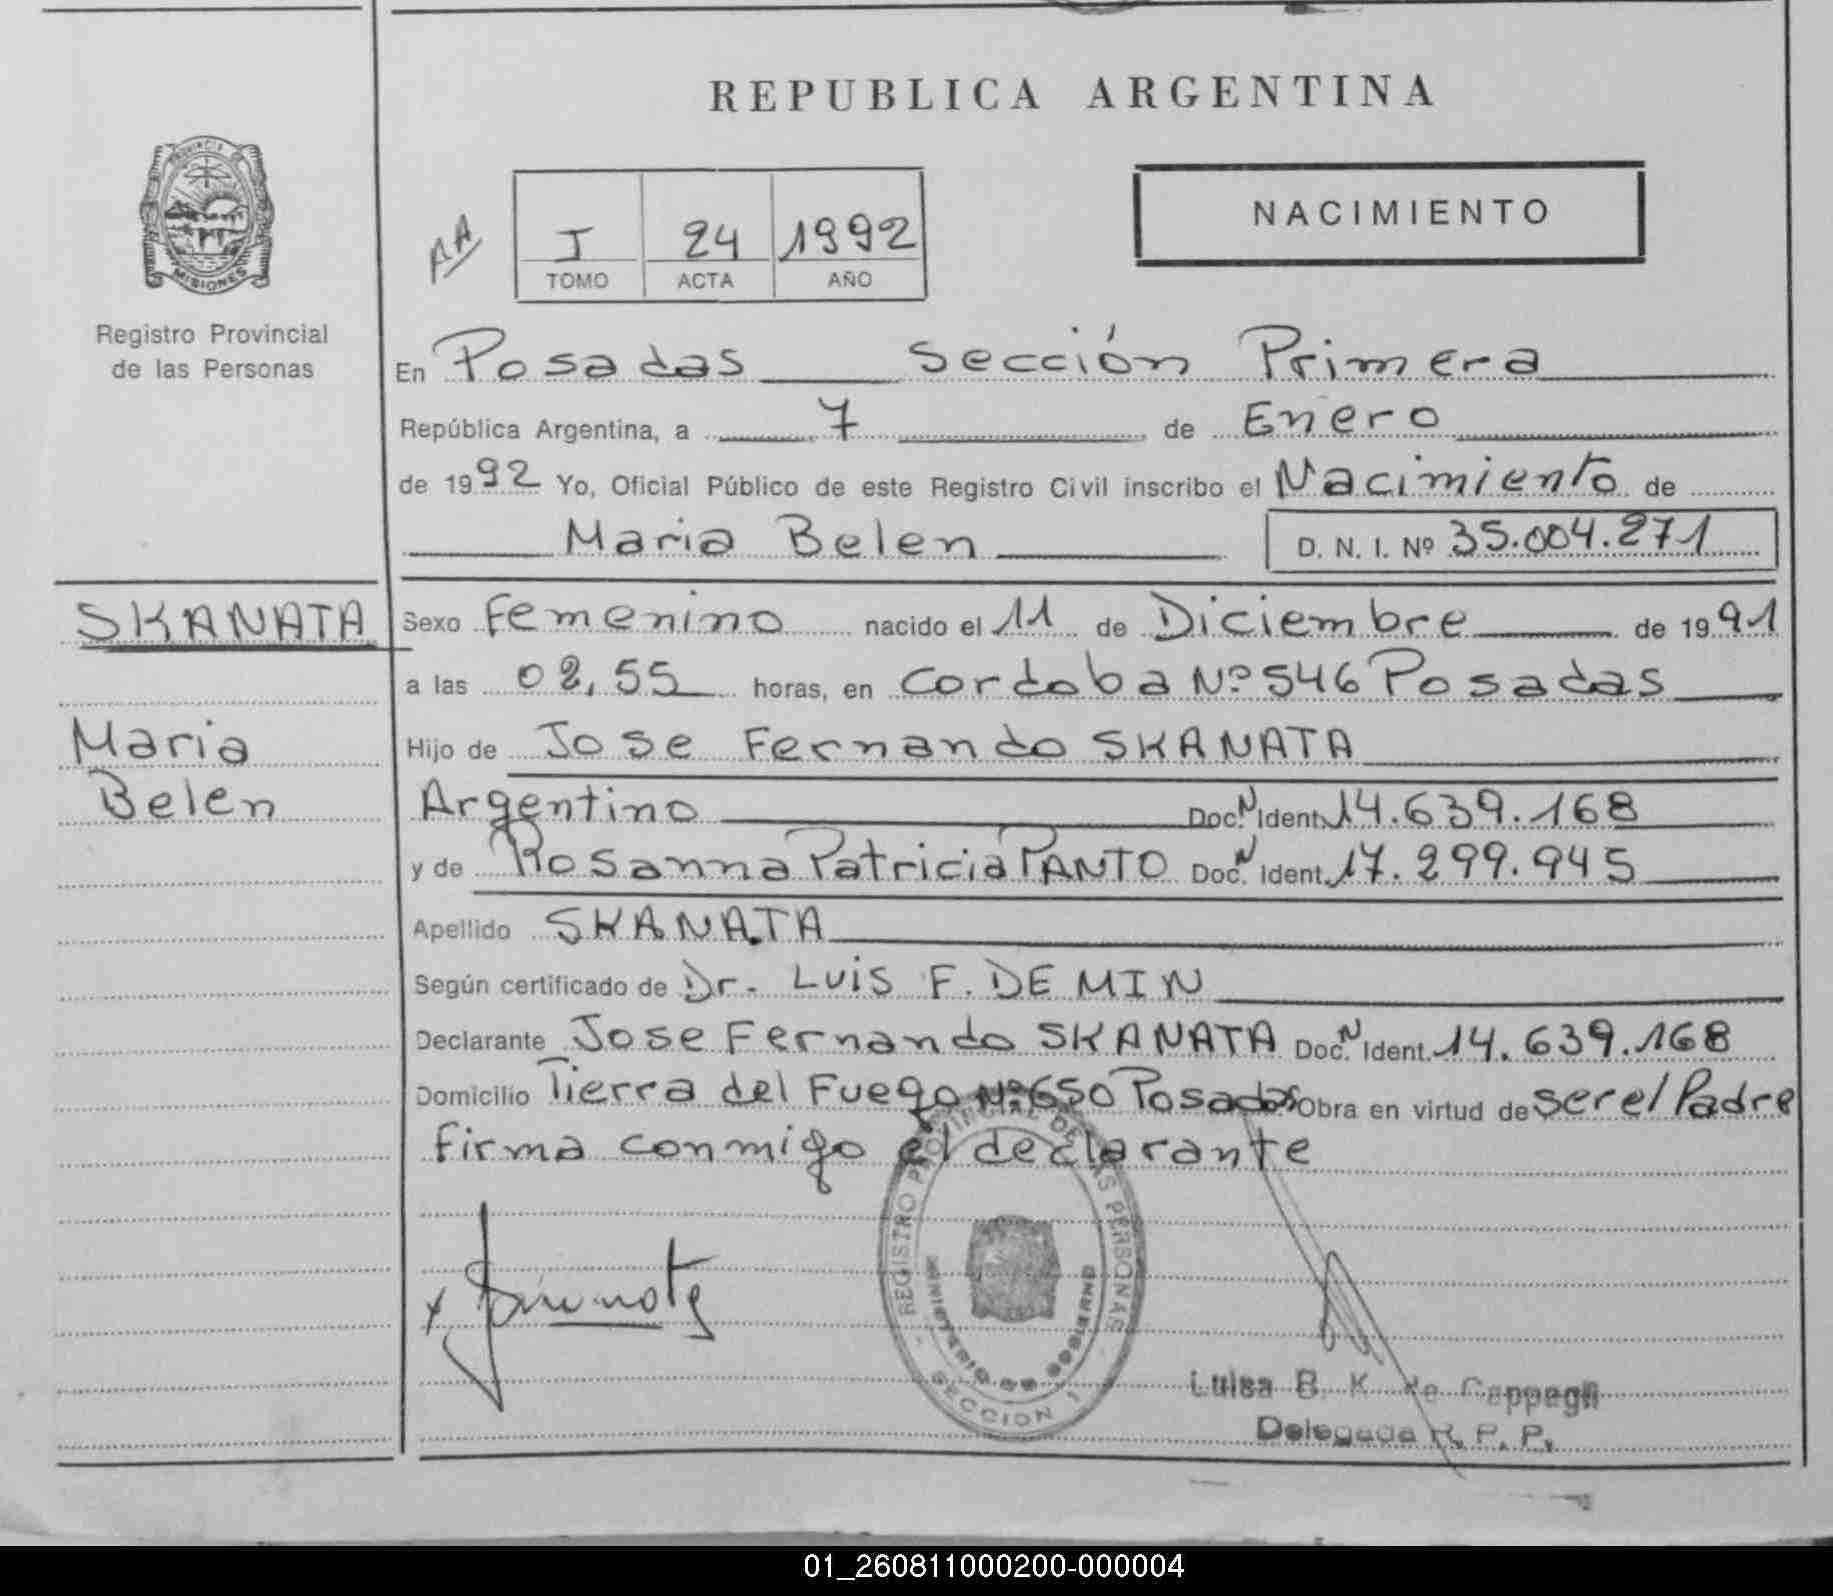 REPUBLICA ARGENTINA
PROVINCIA DE
MISIONES
Registro Provincial
de las Personas
AA
I 24 1992
TOMO ACTA AÑO
NACIMIENTO
En Posadas Sección Primera
República Argentina, a 7 de Enero
de 1992 Yo, Oficial Público de este Registro Civil inscribo el Nacimiento de
Maria Belen D. N. I. Nº 35.004.271
SKANATA
Maria
Belen
Sexo Femenino nacido el 11 de Diciembre de 1991
a las 02,55 horas, en Cordoba Nº 546 Posadas
Hijo de Jose Fernando SKANATA
Argentino Doc. N Ident. 14.639.168
y de Rosanna Patricia PANTO Doc. N Ident. 17.299.945
Apellido SKANATA
Según certificado de Dr. LUIS F. DE MIN
Declarante Jose Fernando SKANATA Doc. N Ident. 14.639.168
Domicilio Tierra del Fuego Nº 650 Posadas Obra en virtud de ser el Padre
firma conmigo el declarante
REGISTRO PROVINCIAL DE LAS PERSONAS
MINISTERIO DE GOBIERNO
SECCION 1
Luisa B. K. de
Delegada R. P. P.
01_260811000200-000004